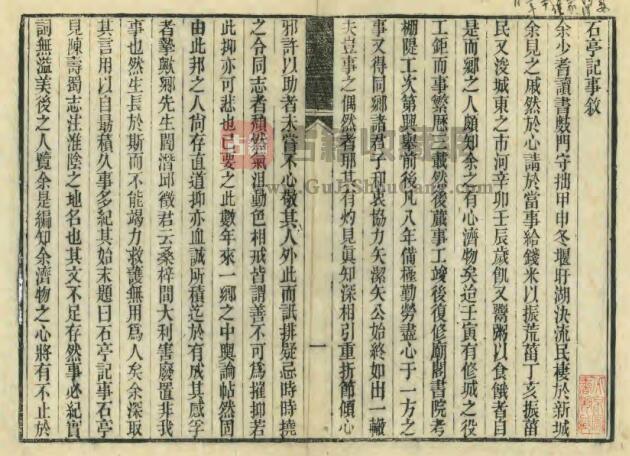 石亭記事敘
余少耆讀書敲門守拙甲申冬堰盱湖決流民棲於新城
余見之戚然於心請於當事給錢米以振荒菑丁亥振菑
民又浚城東之市河辛卯壬辰歲飢又鬻粥以食餓者自
是而鄉之人頗知余之有心濟物矣迨壬寅有修城之役
工鉅而事繁歷三載然後蕆事工竣後復修廟閣書院考
棚隄工次第興舉前後凡八年備極勤勞盡心于一方之
事又得同鄉諸君子和衷協力矢潔矢公始終如出一轍
夫豈事之偶然者耶其有灼見眞知深相引重折節傾心
邪許以助者未嘗不心敬其人外此而詆排疑忌時時撓
之令同志者頹然氣沮動色相戒皆謂善不可爲摧抑若
此抑亦可悲也已要之此數年來一鄉之中輿論帖然固
由此邦之人尚存直道抑亦血誠所積迄於有成其感孚
者摯歟鄉先生閻潛邱徵君云桑梓間大利害廢置非我
事也然生長於斯而不能竭力救護無用爲人矣余深取
其言用以自勗積久事多紀其始末題曰石亭記事石亭
見陳壽蜀志注淮陰之地名也其文不足存然事必紀實
詞無溢美後之人覽余是編知余濟物之心將有不止於
一
古籍收藏网
www.GuJiShouCang.com